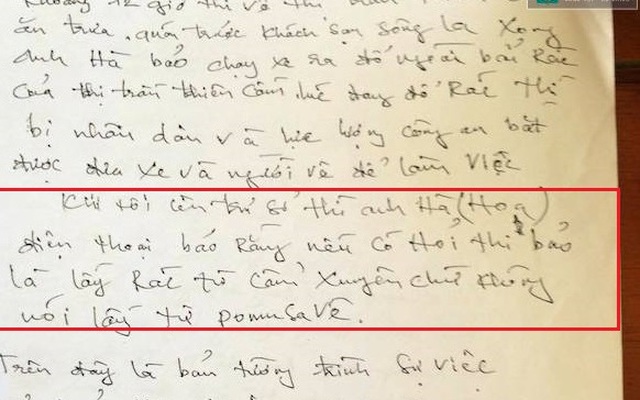 Khoảng 12 giờ thì về thị trấn
ăn trưa, quán trước khách sạn Sông La Xong
Anh Hà bảo chạy xe ra đổ ngoài bãi Rác
Của thị trấn thiên Cầm, khi đang đổ Rác thì
bị nhân dân và lực lượng Công an bắt
được đưa xe và người về để làm việc
Khi tôi lên trụ sở thì anh Hà (Hoạt)
điện thoại bảo Rằng nếu Có Hỏi thì bảo
là lấy Rác từ Cẩm Xuyên chứ không
nói lấy từ pomusa Về.
Trên đây là bản tường trình Sự việc